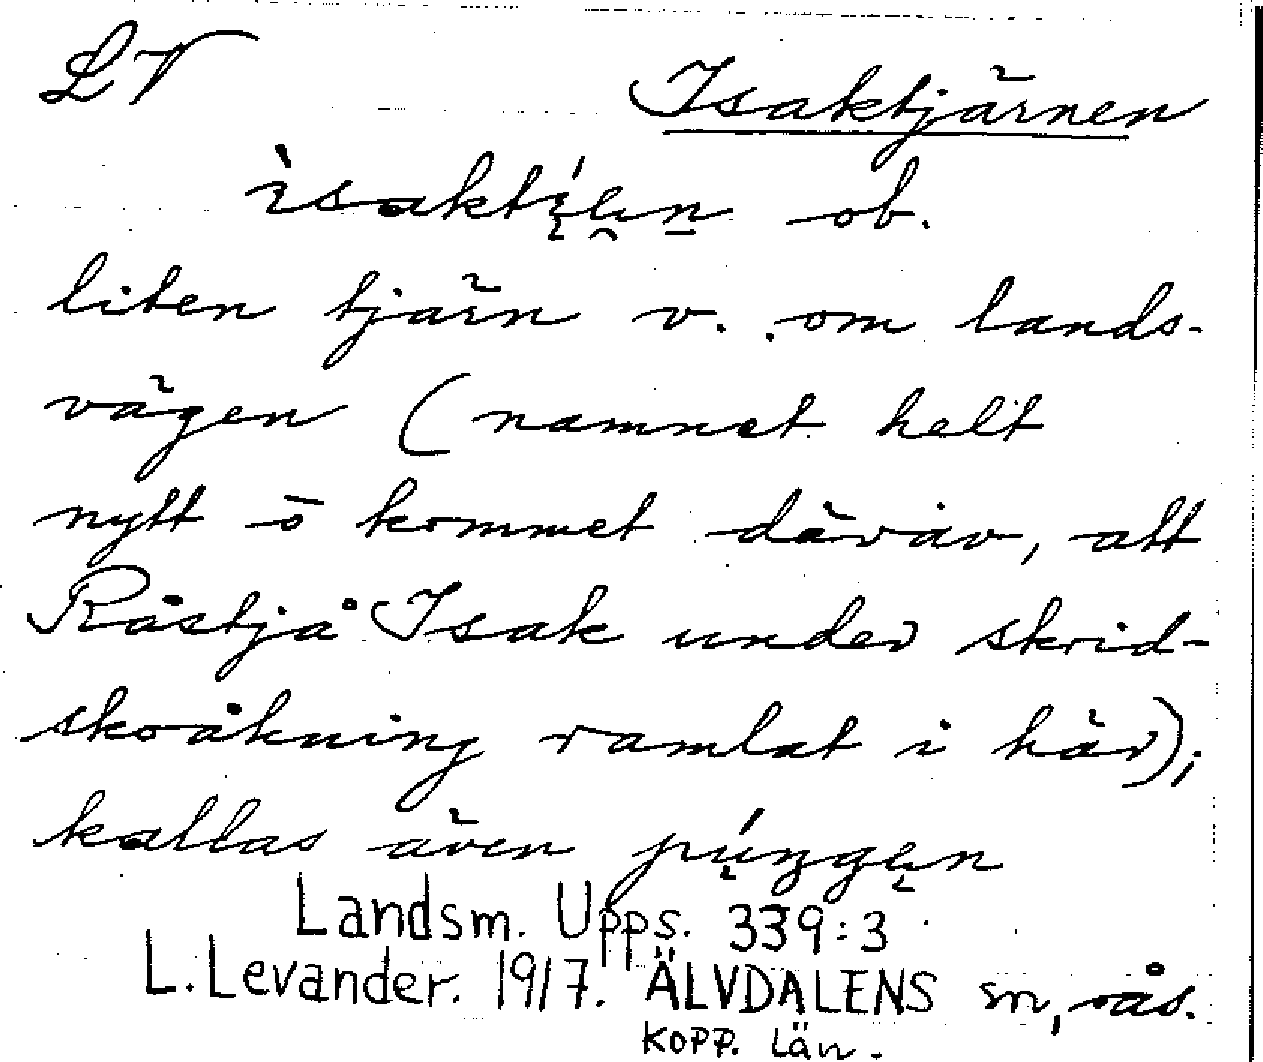 LV
Isaktjärnen
ob.
liten tjärn v. om lands-
vägen (namnet helt
nytt o kommet därav, att
Råstjå Isak under skrid-
skoåkning ramlat i här);
kallas även
Landsm. Upps. 339:3
L. Levander. 1917. ÄLVDALENS sn, rås.
KOPP. Län.